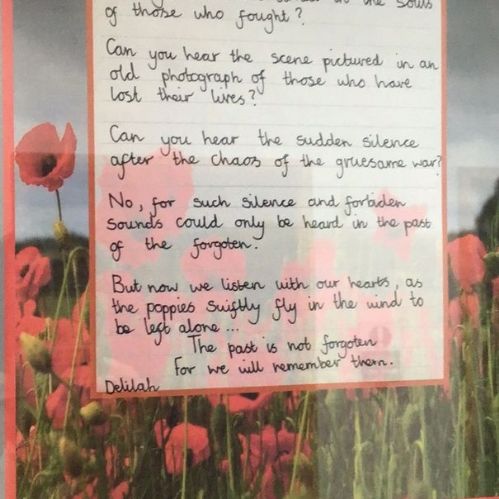 in the souls
of those who fought?
Can you hear the scene pictured in an
old photograph of those who have
lost their lives?
Can you hear the sudden silence
after the chaos of the gruesame war?
No, for such silence and forbiden
sounds could only be heard in the past
of the forgoten.
But now we listen with our hearts, as
the poppies swiftly fly in the wind to
be left alone...
The past is not forgoten
For we will remember them.
Delilah